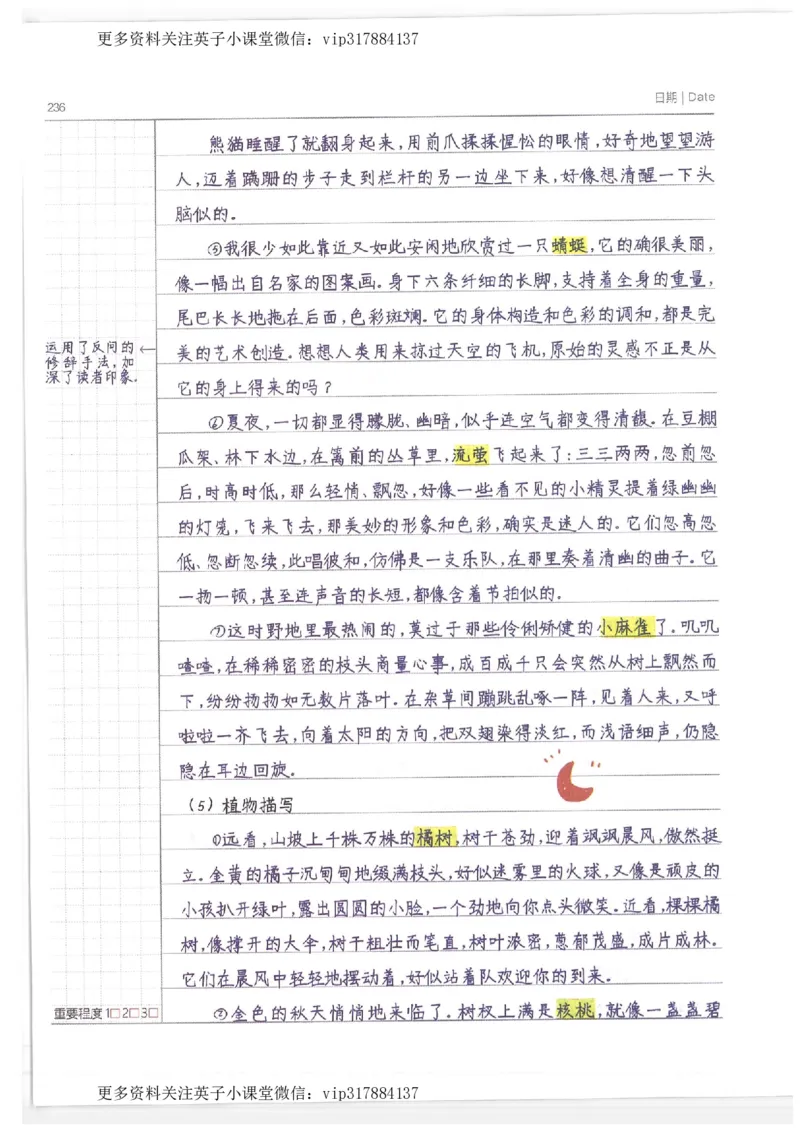 更多资料关注英子小课堂微信：vip317884137
日期 | Date
236
熊猫睡醒了就翻身起来,用前爪揉揉惺忪的眼情,好奇地望望游
人,迈着蹒跚的步子走到栏杆的另一边坐下来,好像想清醒一下头
脑似的。
⑤我很少如此靠近又如此安闲地欣赏过一只蜻蜓,它的确很美丽,
像一幅出自名家的图案画。身下六条纤细的长脚,支持着全身的重量,
尾巴长长地拖在后面,色彩斑斓。它的身体构造和色彩的调和,都是完
美的艺术创造。想想人类用来掠过天空的飞机,原始的灵感不正是从
它的身上得来的吗?
运用了反问的
修辞手法,加
深了读者印象.
⑥夏夜,一切都显得朦胧、幽暗,似乎连空气都变得清馥。在豆棚
瓜架、林下水边,在篱前的丛草里,流萤飞起来了:三三两两,忽前忽
后,时高时低,那么轻情、飘忽,好像一些看不见的小精灵提着绿幽幽
的灯笼,飞来飞去,那美妙的形象和色彩,确实是迷人的。它们忽高忽
低、忽断忽续,此唱彼和,仿佛是一支乐队,在那里奏着清幽的曲子。它
一扬一顿,甚至连声音的长短,都像含着节拍似的。
⑦这时野地里最热闹的,莫过于那些伶俐矫健的小麻雀了。叽叽
喳喳,在稀稀密密的枝头商量心事,成百成千只会突然从树上飘然而
下,纷纷扬扬如无数片落叶。在杂草间蹦跳乱啄一阵,见着人来,又呼
啦啦一齐飞去,向着太阳的方向,把双翅染得淡红,而浅语细声,仍隐
隐在耳边回旋。
(5)植物描写
①远看,山坡上千株万株的橘树,树干苍劲,迎着飒飒晨风,傲然挺
立。金黄的橘子沉甸甸地缀满枝头,好似迷雾里的火球,又像是顽皮的
小孩扒开绿叶,露出圆圆的小脸,一个劲地向你点头微笑。近看,棵棵橘
树,像撑开的大伞,树干粗壮而笔直,树叶浓密,葱郁茂盛,成片成林。
它们在晨风中轻轻地摆动着,好似站着队欢迎你的到来。
②金色的秋天悄悄地来临了。树杈上满是核桃,就像一盏盏碧
重要程度 1□2□3□
更多资料关注英子小课堂微信：vip317884137